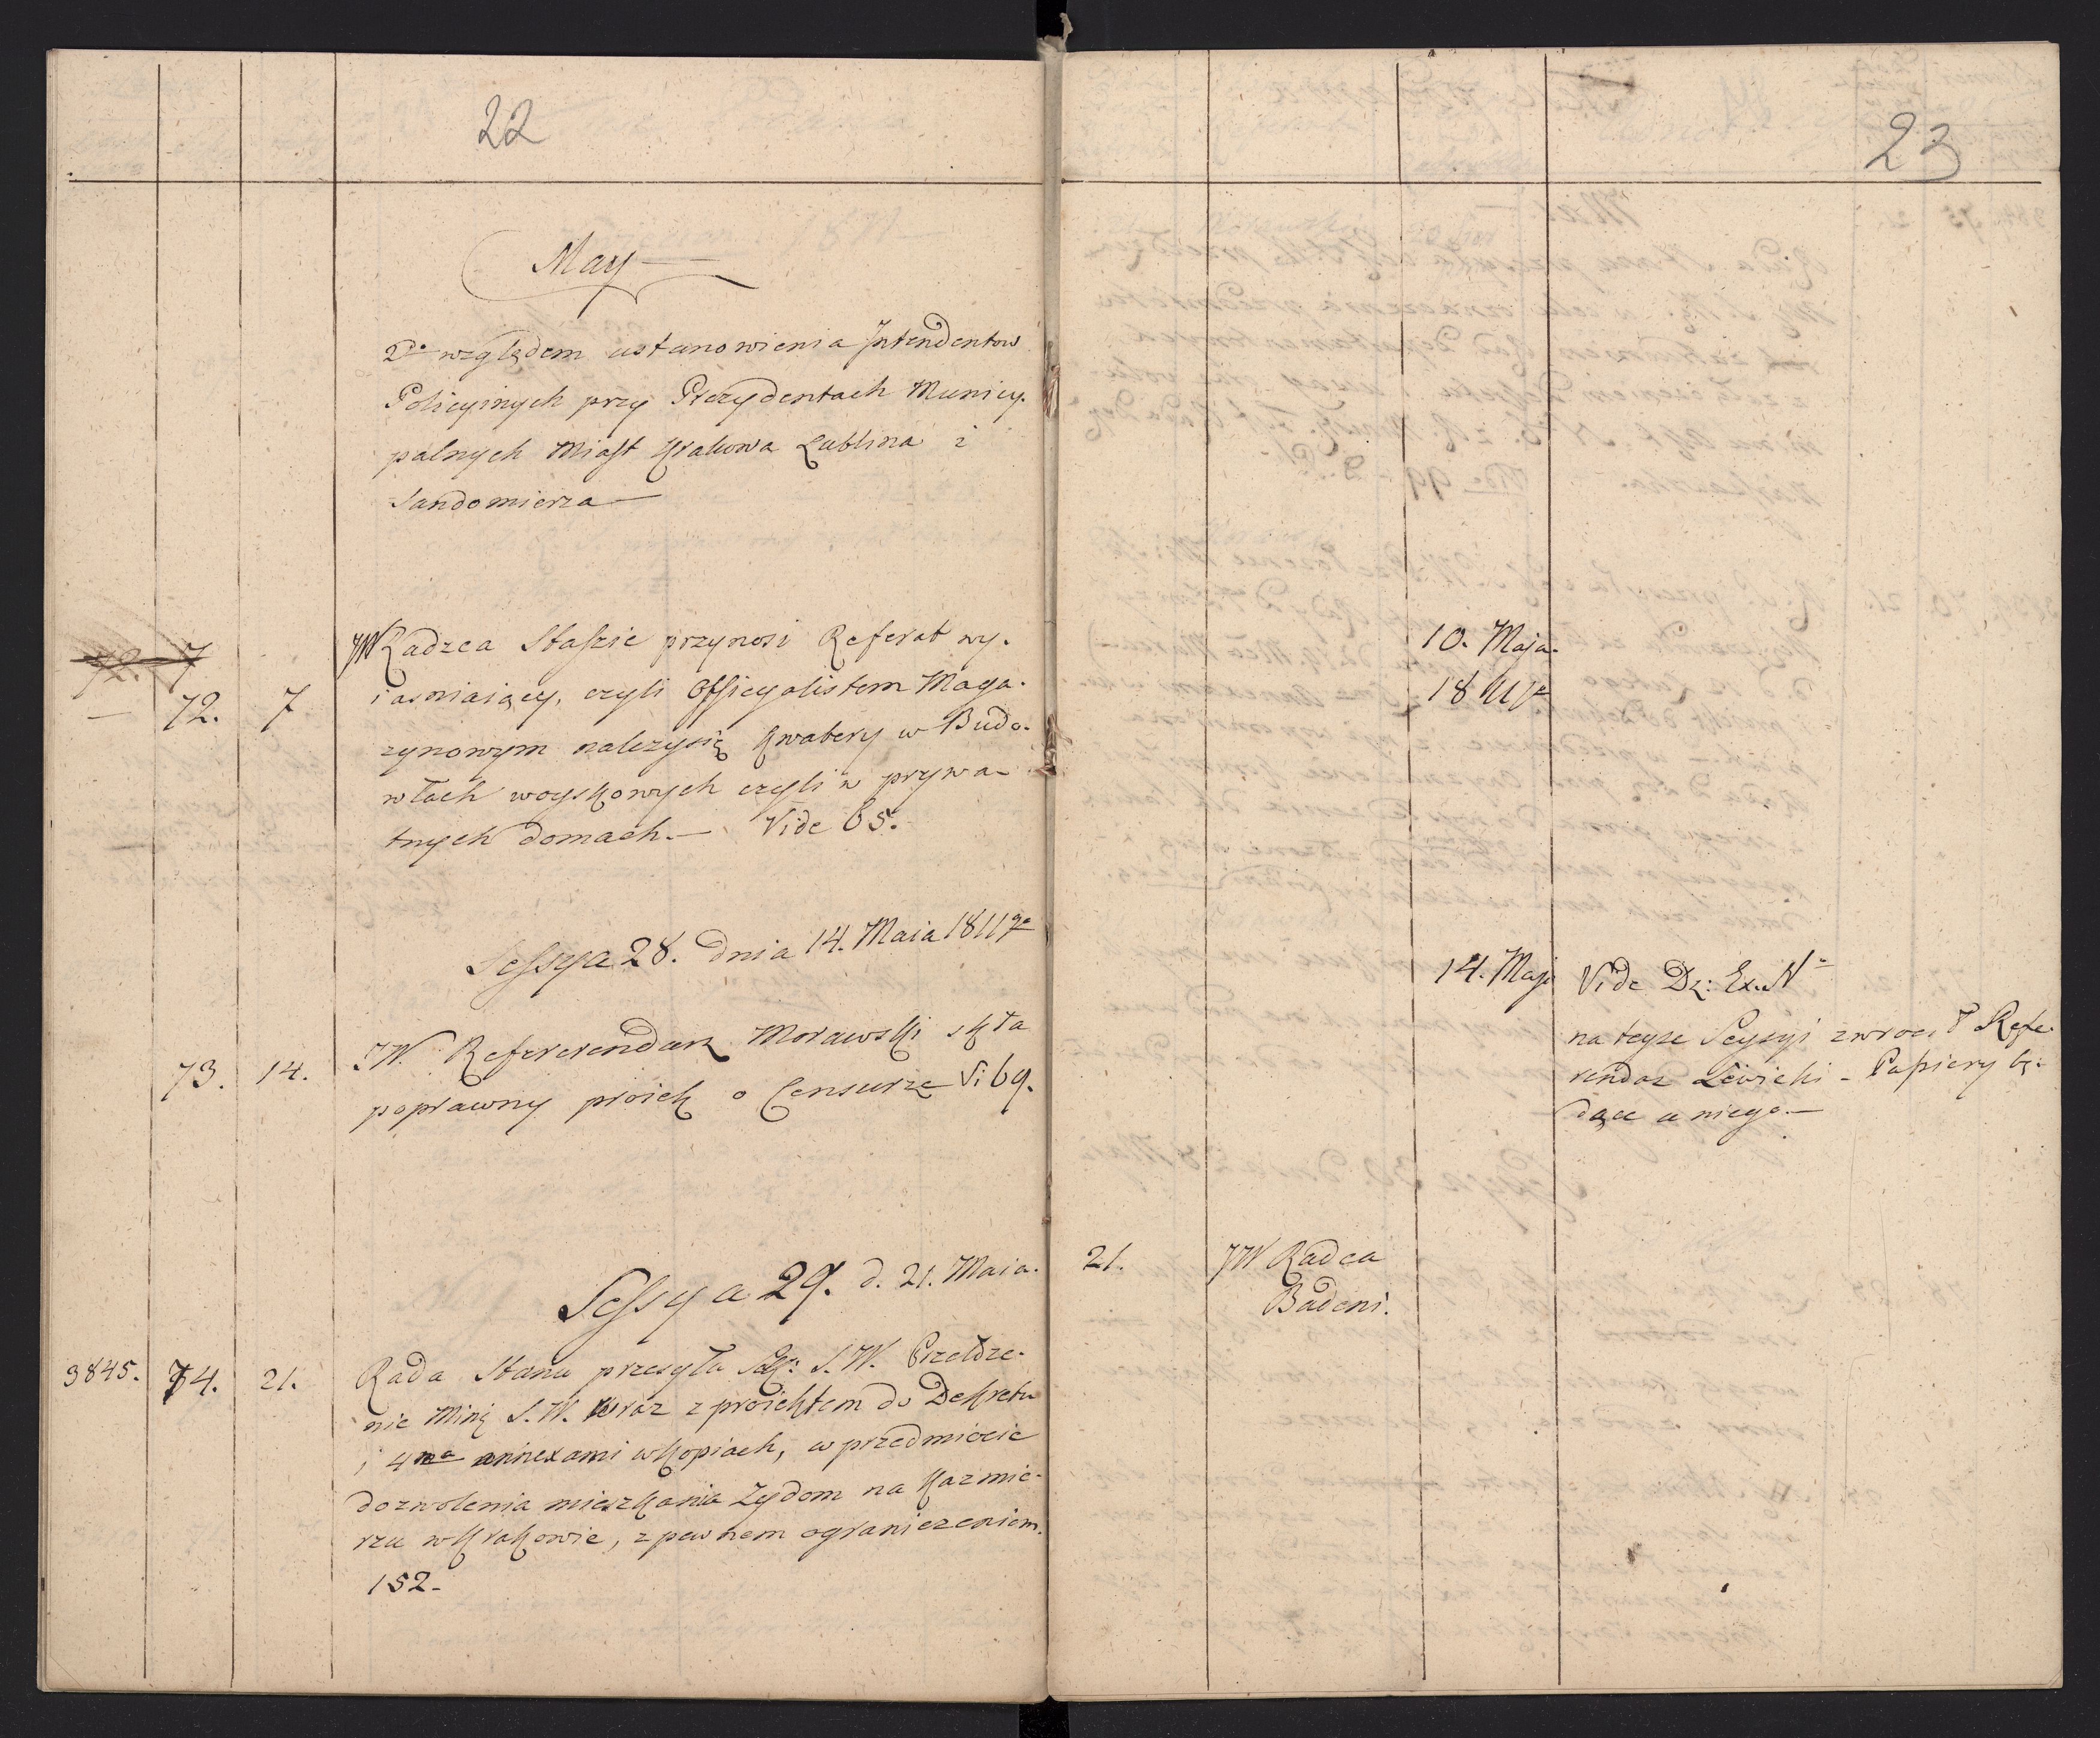 22
May
2do względem ustanowienia Intendentow
Policyinych przy Prezydentach Municy-
palnych Miast Krakowa Lublina i
Sandomierza —
72. 7
— 72. 7
JW Radzca Staszic przynosi Referat wy-
iasniaiący, czyli Officyalistom Maga-
zynowym należysię kwatery w Budo-
wlach woyskowych czyli w prywa-
tnych domach. — Vide 65.
Sessya 28. Dnia 14. Maia 1811go
73. 14. JW. Refererendarz Morawski skła
poprawny proiek o Censurze Vi 69.
Sessya 29. d. 21. Maia.
3845. 74. 21. Rada Stanu przesyła S. W. Przełoże-
nie Mina S. W. wraz z proiektem do Dekretu
i 4ma annexami w kopiach, w przedmiocie
dozwolenia mieszkania Zydom na Kazmie-
rzu w Krakowie, z pewnem ograniczeniem.
152.
23
10. Maja
1811go
14. Maja Vide Dz: Ex. No
na teyze Seyssyi zwrocił Refe-
rendarz Lewicki - Papiery bę-
dące u niego. —
21. JW Radca
Badeni.